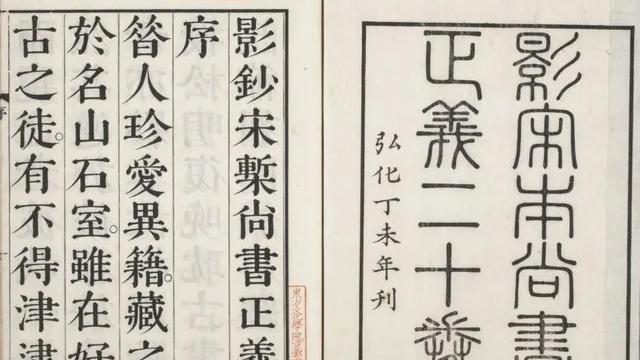 影宋本尚書
正義二十卷
弘化丁未年刊
影鈔宋槧尚書正義
序
昝人珍愛異籍。藏之
於名山石室。雖在好
古之徒。有不得津津
序